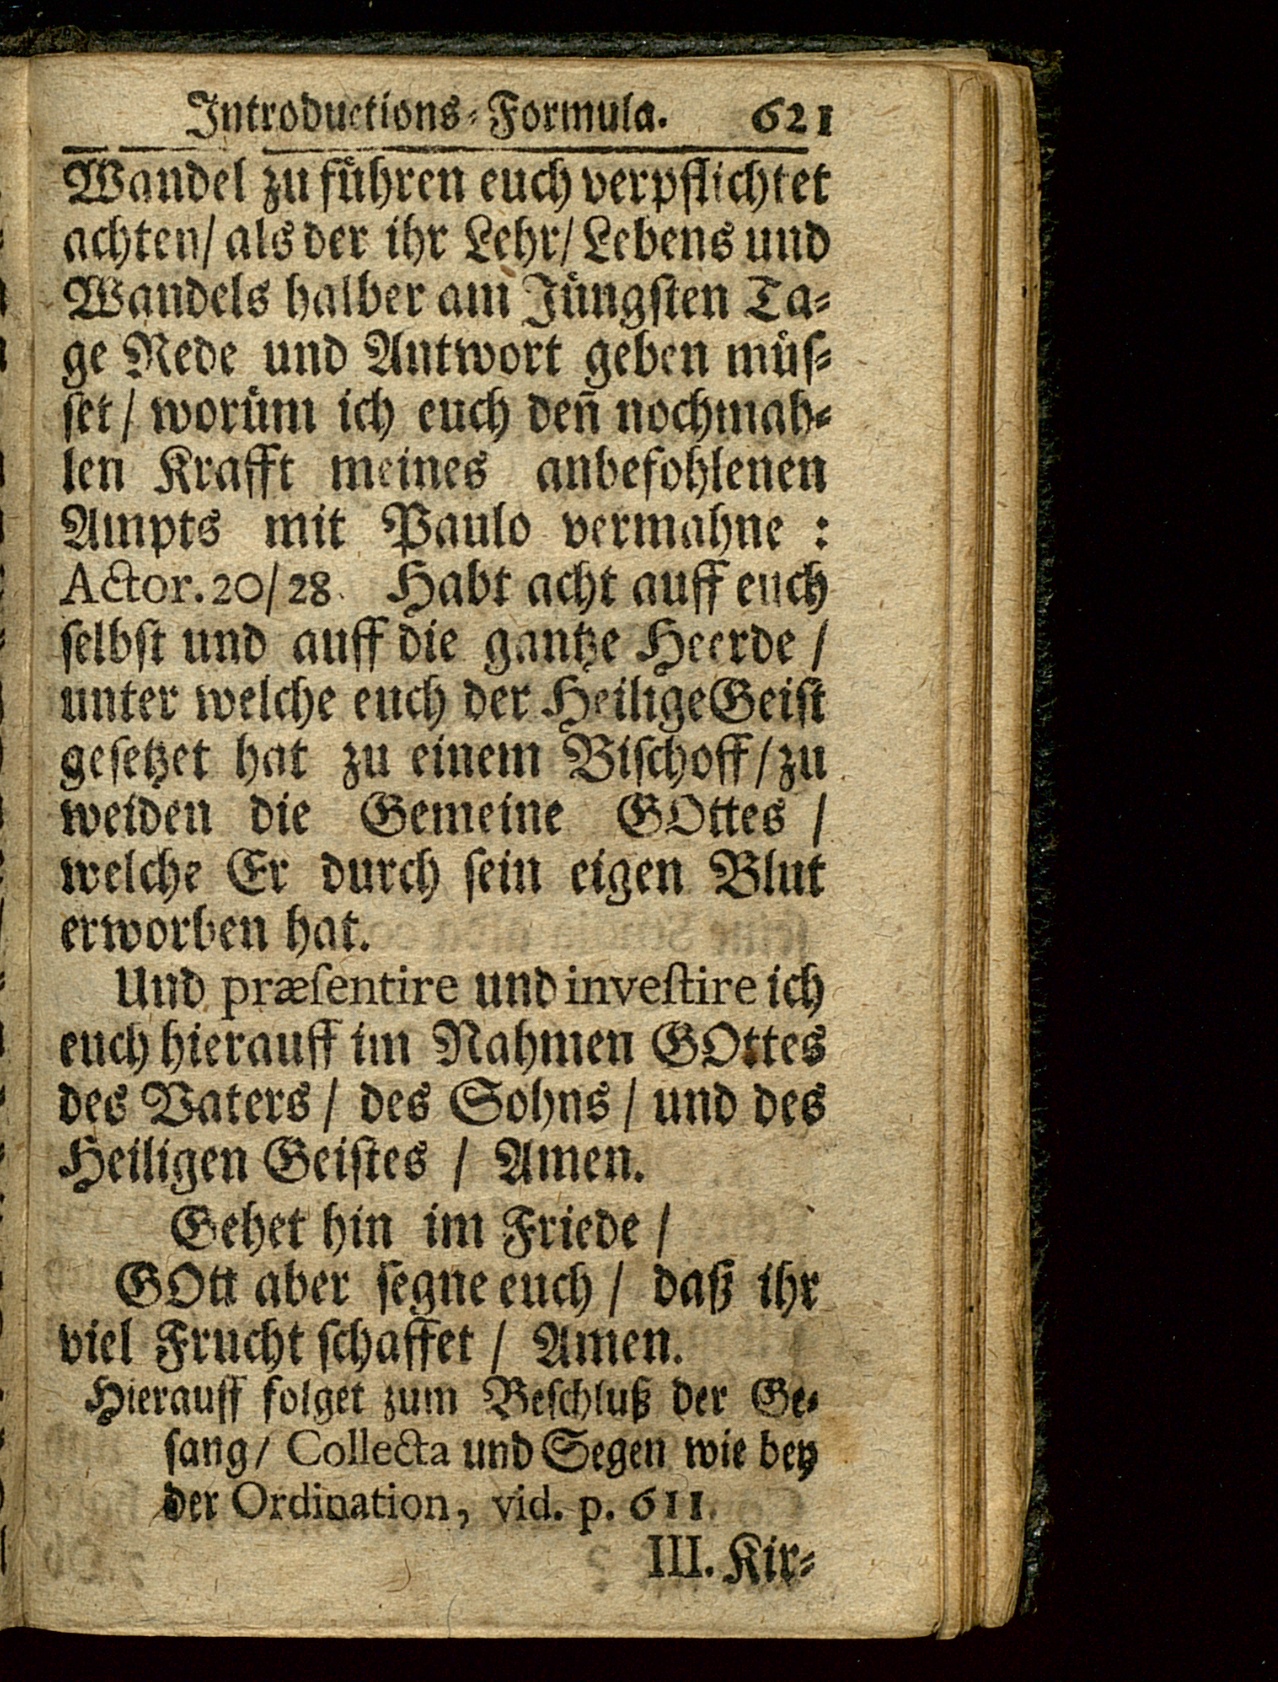 Introductions-Formula. 621
Wandel zu führen euch verpflichtet
achten/ als der ihr Lehr/ Lebens und
Wandels halber am Jüngsten Ta-
ge Rede und Antwort geben müs-
set / worüm ich euch deñ nochmah-
len Krafft meines anbefohlenen
Ampts mit Paulo vermahne :
Actor. 20/28. Habt acht auff euch
selbst und auff die gantze Heerde /
unter welche euch der Heilige Geist
gesetzet hat zu einem Bischoff / zu
weiden die Gemeine GOttes /
welche Er durch sein eigen Blut
erworben hat.
Und præsentire und investire ich
euch hierauff im Nahmen GOttes
des Vaters / des Sohns / und des
Heiligen Geistes / Amen.
Gehet hin im Friede /
GOtt aber segne euch / daß ihr
viel Frucht schaffet / Amen.
Hierauff folget zum Beschluß der Ge-
sang/ Collecta und Segen wie bey
der Ordination, vid. p. 611.
III. Kir-